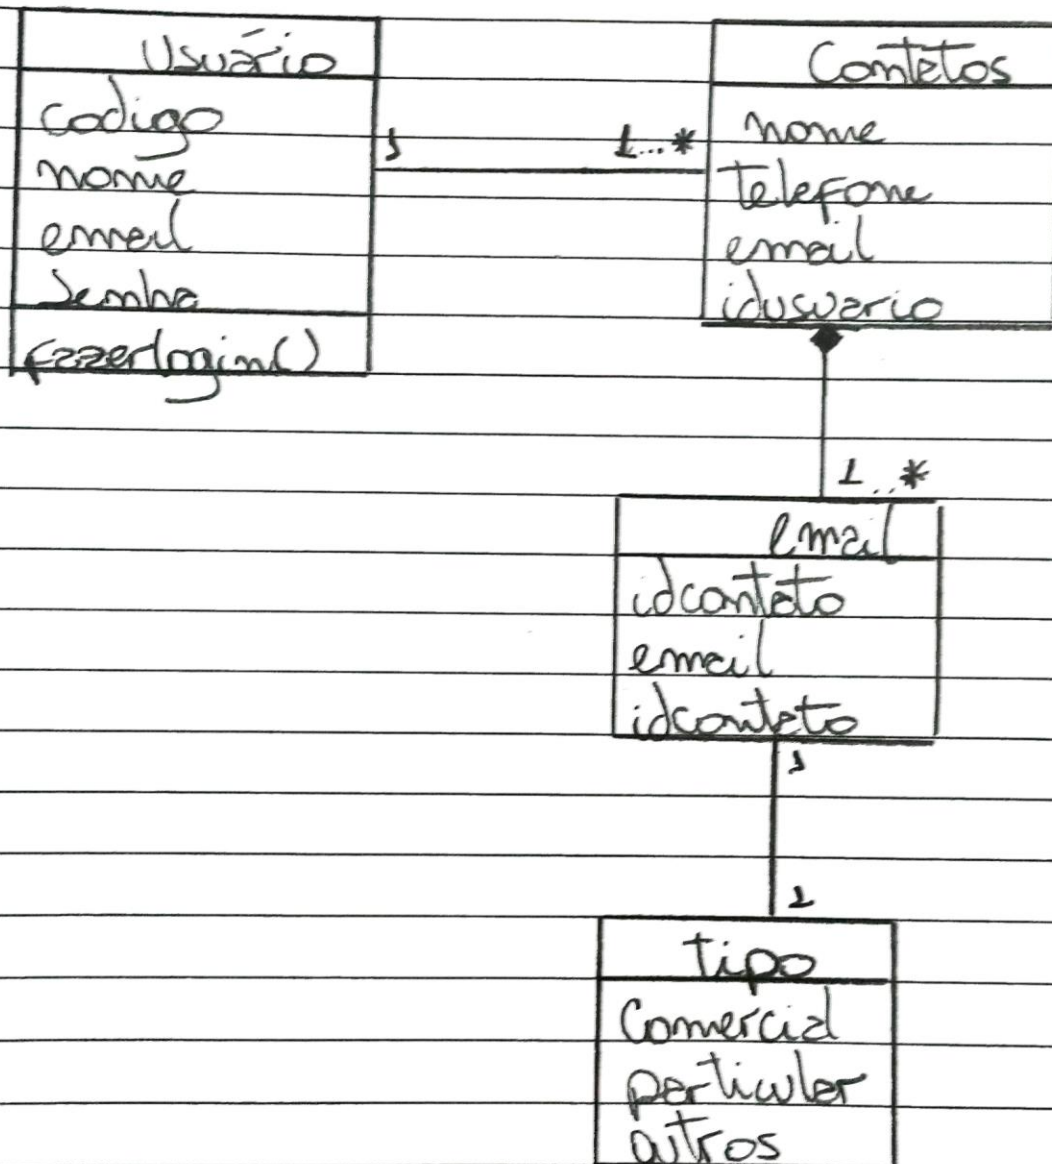 Usuário
codigo
nome
email
Senha
fazerlogin()
1
1...*
Contatos
nome
telefone
email
idusuario
1..*
email
idcontato
email
idcontato
1
1
tipo
Comercial
particular
outros